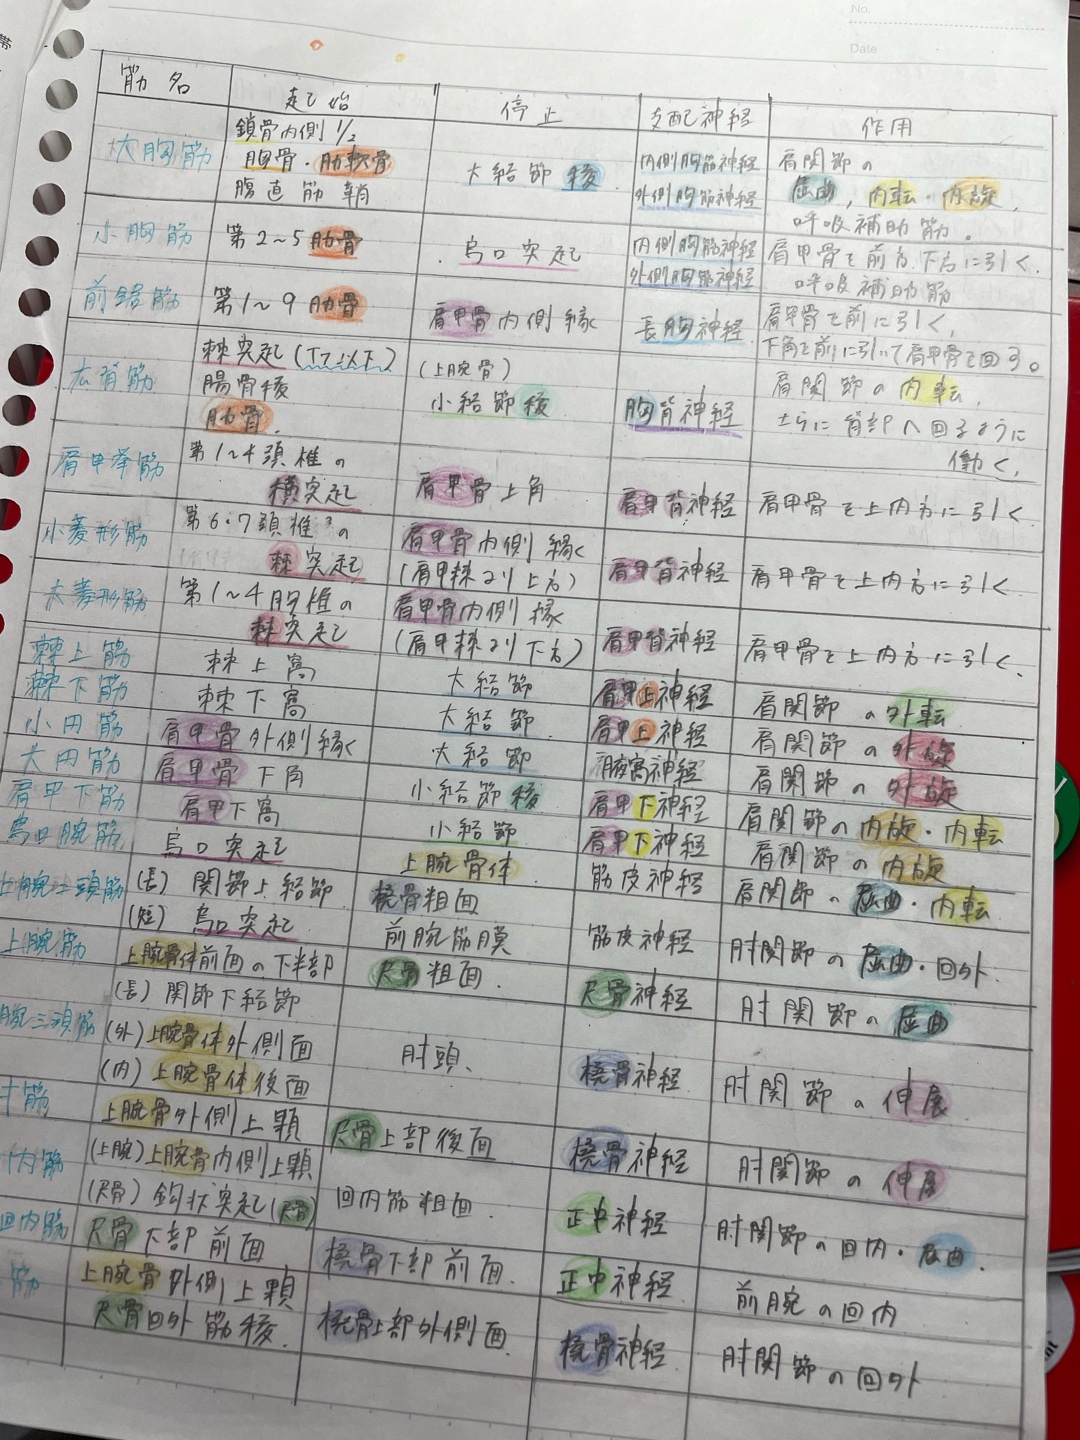 No.
Date
筋名 起始 停止 支配神経 作用
大胸筋 鎖骨内側1/2 胸骨・肋軟骨 腹直筋鞘 大結節稜 内側胸筋神経 外側胸筋神経 肩関節の屈曲,内転・内旋, 呼吸補助筋。
小胸筋 第2~5肋骨 烏口突起 内側胸筋神経 外側胸筋神経 肩甲骨を前方、下方に引く. 呼吸補助筋
前鋸筋 第1~9肋骨 肩甲骨内側縁 長胸神経 肩甲骨を前に引く, 下角を前に引いて肩甲骨を回す。
広背筋 棘突起(T7以下) 腸骨稜 肋骨. (上腕骨) 小結節稜 胸背神経 肩関節の内転, さらに背部へ回るように働く,
肩甲挙筋 第1~4頚椎の横突起 肩甲骨上角 肩甲背神経 肩甲骨を上内方に引く
小菱形筋 第6・7頚椎の棘突起 肩甲骨内側縁 (肩甲棘より上方) 肩甲背神経 肩甲骨を上内方に引く
大菱形筋 第1~4胸椎の棘突起 肩甲骨内側縁 (肩甲棘より下方) 肩甲背神経 肩甲骨を上内方に引く
棘上筋 棘上窩 大結節 肩甲上神経 肩関節の外転
棘下筋 棘下窩 大結節 肩甲上神経 肩関節の外旋
小円筋 肩甲骨外側縁 大結節 腋窩神経 肩関節の外旋
大円筋 肩甲骨下角 小結節稜 肩甲下神経 肩関節の内旋・内転
肩甲下筋 肩甲下窩 小結節 肩甲下神経 肩関節の内旋
烏口腕筋 烏口突起 上腕骨体 筋皮神経 肩関節の屈曲・内転
上腕二頭筋 (長)関節上結節 (短)烏口突起 橈骨粗面 前腕筋膜 筋皮神経 肘関節の屈曲・回外.
上腕筋 上腕骨体前面の下半部 尺骨粗面. 尺骨神経 肘関節の屈曲
腕三頭筋 (長)関節下結節 (外)上腕骨体外側面 (内)上腕骨体後面 肘頭、 橈骨神経 肘関節の伸展
筋 上腕骨外側上顆 尺骨上部後面 橈骨神経 肘関節の伸展
内筋 (上腕)上腕骨内側上顆 (尺骨)鈎状突起(尺骨) 回内筋粗面 正中神経 肘関節の回内・屈曲.
回内筋 尺骨下部前面 橈骨下部前面. 正中神経 前腕の回内
筋 上腕骨外側上顆 尺骨回外筋稜. 橈骨上部外側面. 橈骨神経 肘関節の回外